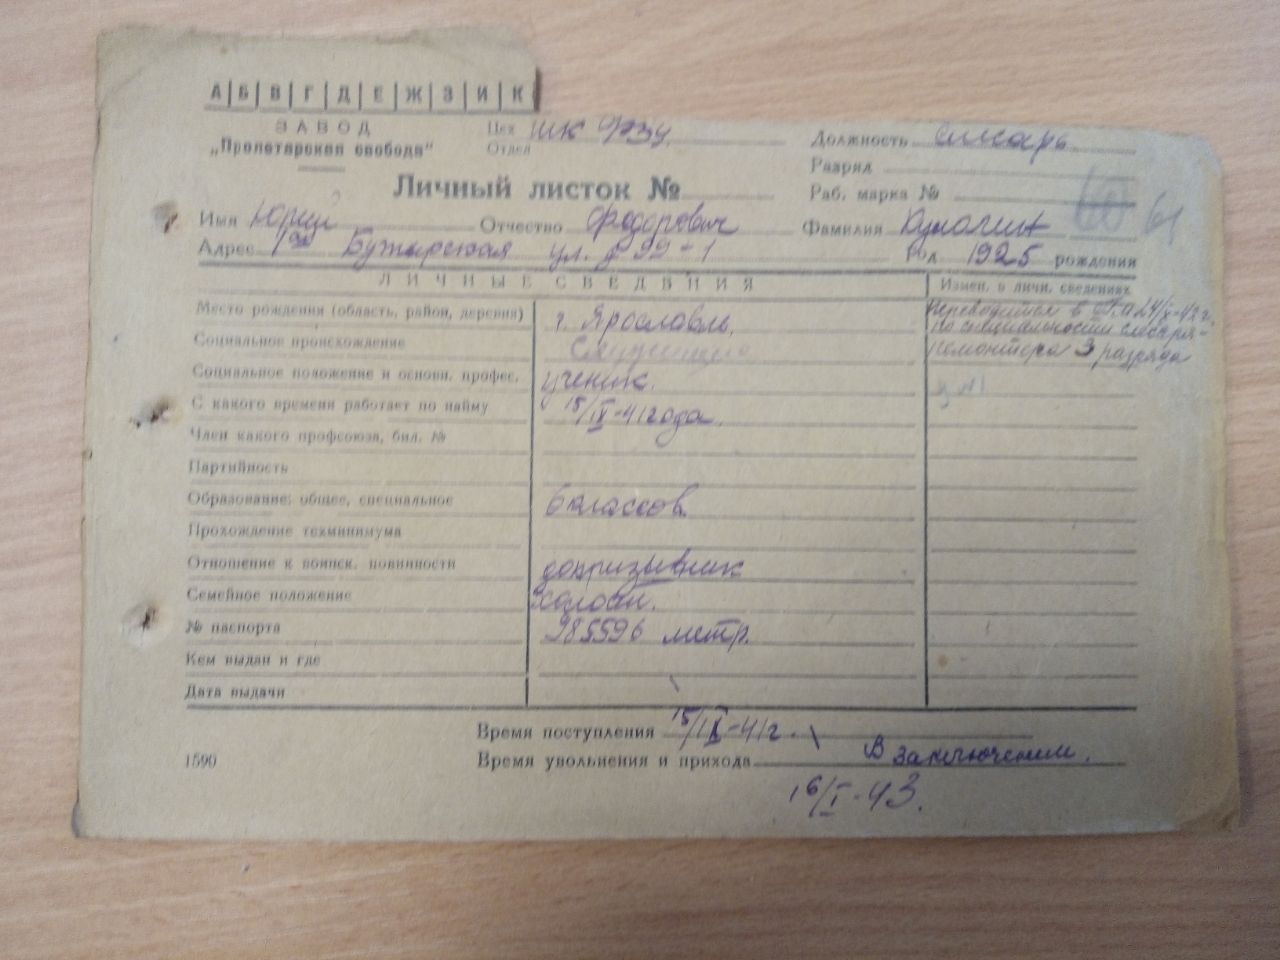 А|Б|В|Г|Д|Е|Ж|З|И|К
ЗАВОД
„Пролетарская свобода“
Цех шк ФЗУ
Отдел
Должность слесарь
Разряд
Раб. марка №
Личный листок №
60 61
Имя Юрий Отчество Федорович Фамилия Кулагин
Адрес 1ая Бутырская ул. д 99-1 Год 1925 рождения
ЛИЧНЫЕ СВЕДЕНИЯ
Измен. в личн. сведениях
Место рождения (область, район, деревня) г. Ярославль
Переводится в 24/X-42 г.
по специальности слесаря-
ремонтера 3 разряда
Социальное происхождение Служащие
Социальное положение и основн. профес. ученик.
С какого времени работает по найму 15/IX-41 года.
Член какого профсоюза, бил. №
Партийность
Образование: общее, специальное 6 классов
Прохождение техминимума
Отношение к воинск. повинности допризывник
Семейное положение холост.
№ паспорта 985596 метр.
Кем выдан и где
Дата выдачи
Время поступления 15/IX-41г.
1590
Время увольнения и прихода В заключении.
16/I-43.